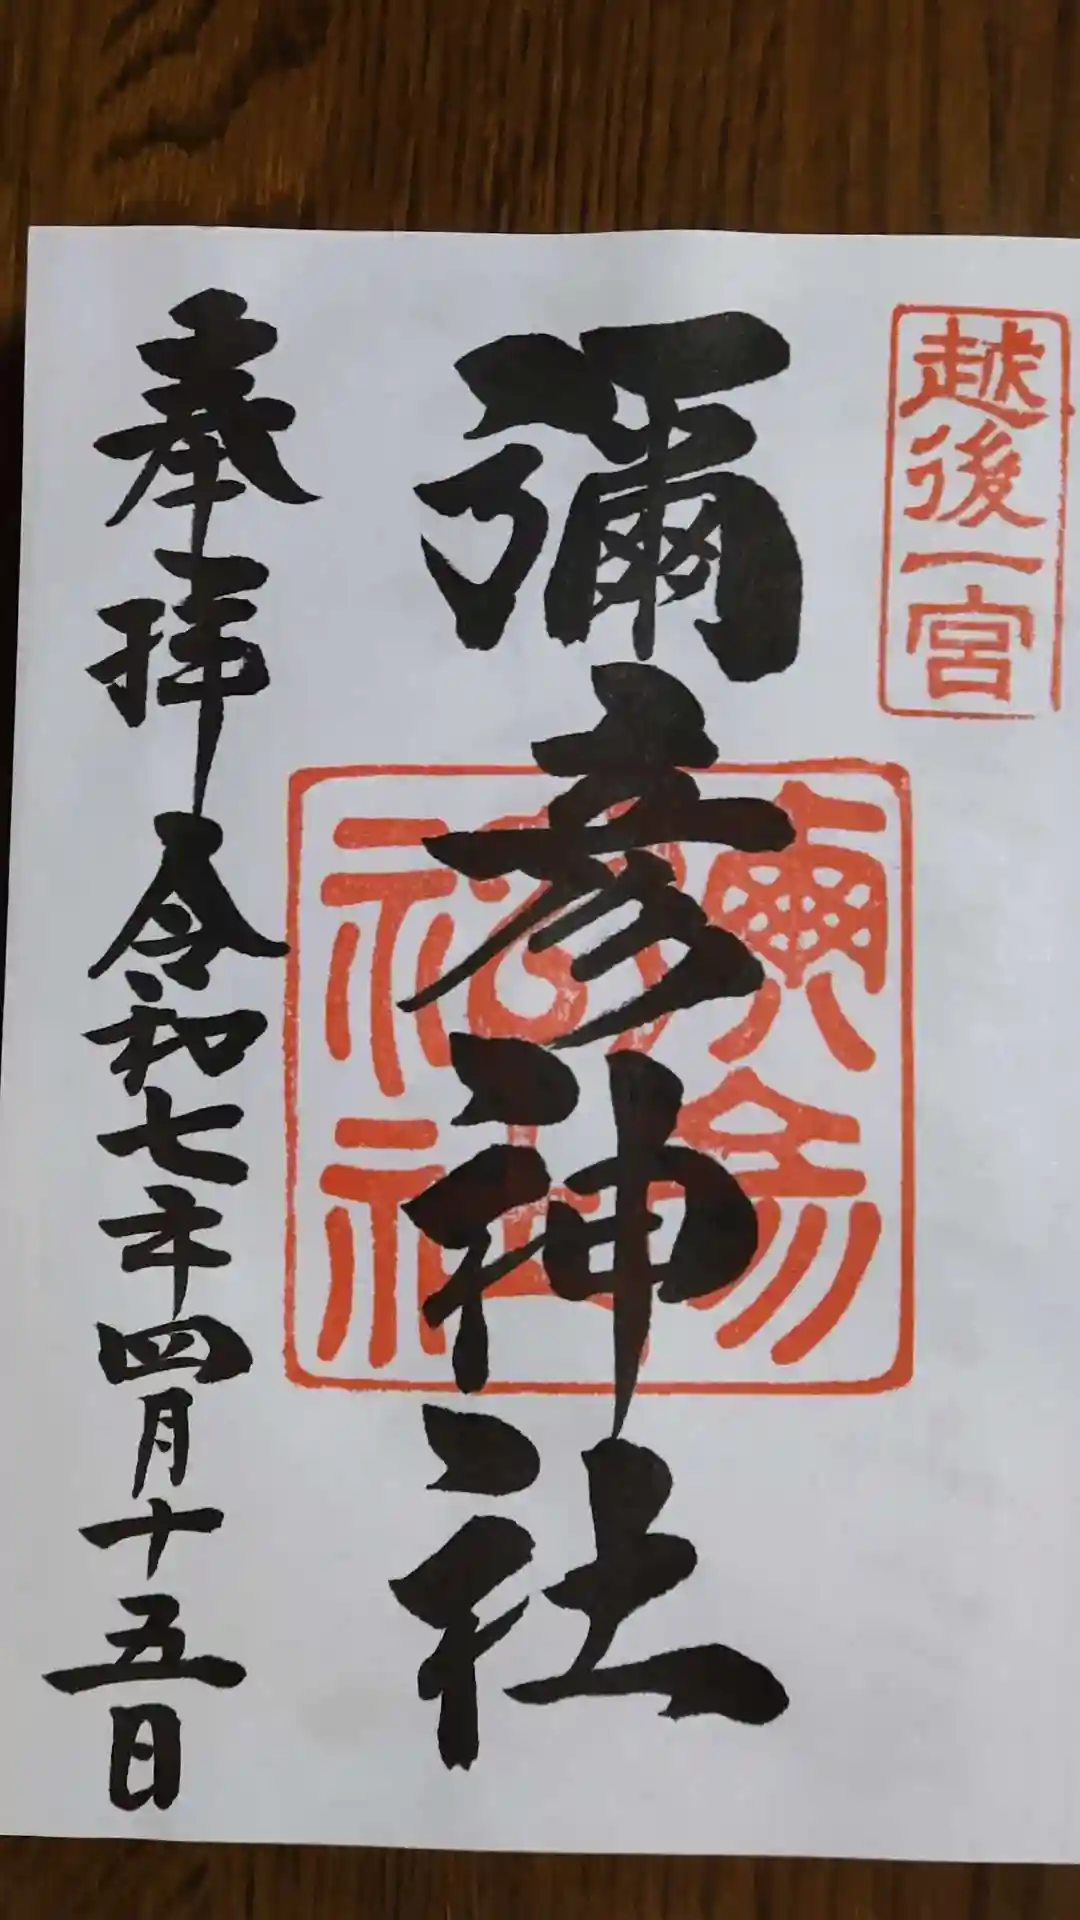 越後一宮
彌彦神社
彌彦神社
奉拝 令和七年四月十五日